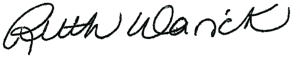 Ruth Warick